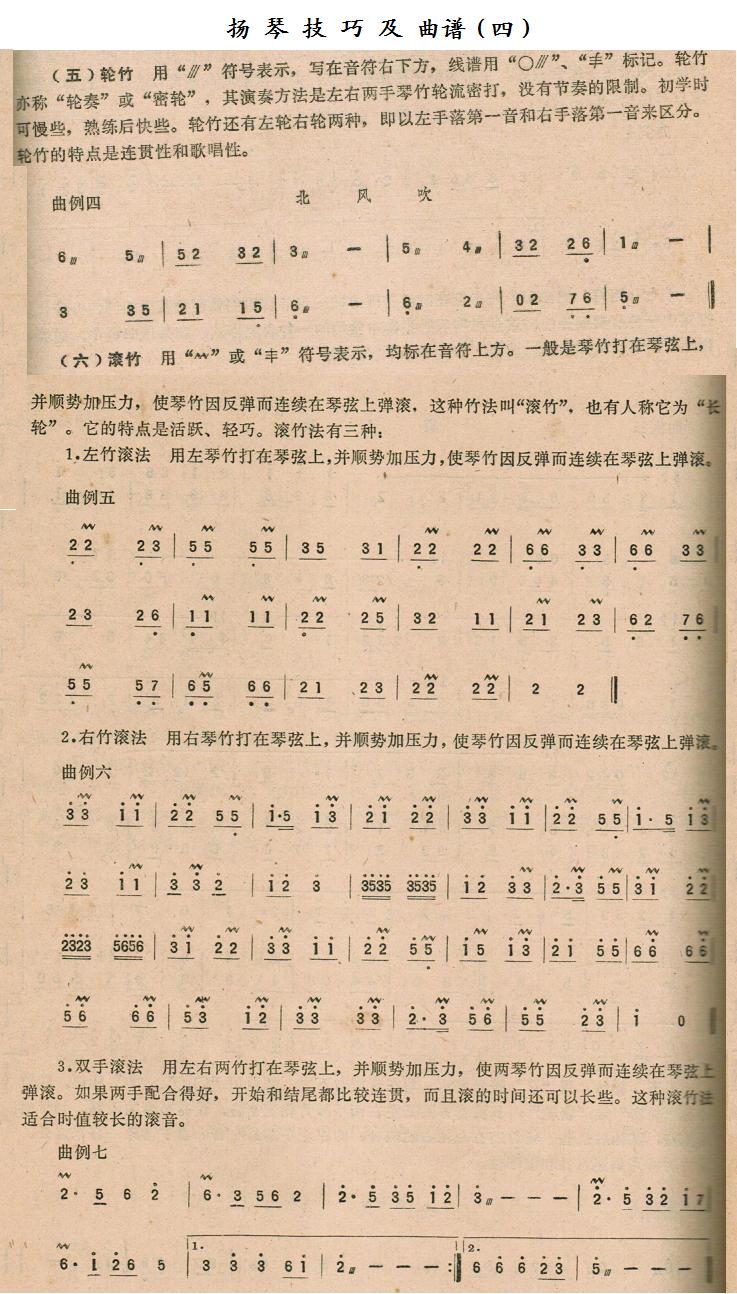 扬琴技巧及曲谱(四)
(五)轮竹 用“⫻”符号表示，写在音符右下方，线谱用“〇⫻”、“丰”标记。轮竹
亦称“轮奏”或“密轮”，其演奏方法是左右两手琴竹轮流密打，没有节奏的限制。初学时
可慢些，熟练后快些。轮竹还有左轮右轮两种，即以左手落第一音和右手落第一音来区分。
轮竹的特点是连贯性和歌唱性。
曲例四 北风吹
6⫻ 5⫻ | 52 32 | 3⫻ － | 5⫻ 4⫻ | 32 26 | 1⫻ － |
3 35 | 21 15 | 6⫻ － | 6⫻ 2⫻ | 02 76 | 5⫻ － ‖
(六)滚竹 用“〰”或“丰”符号表示，均标在音符上方。一般是琴竹打在琴弦上，
并顺势加压力，使琴竹因反弹而连续在琴弦上弹滚，这种竹法叫“滚竹”，也有人称它为“长
轮”。它的特点是活跃、轻巧。滚竹法有三种：
1.左竹滚法 用左琴竹打在琴弦上，并顺势加压力，使琴竹因反弹而连续在琴弦上弹滚。
曲例五
22 23 | 55 55 | 35 31 | 22 22 | 66 33 | 66 33
23 26 | 11 11 | 22 25 | 32 11 | 21 23 | 62 76
55 57 | 65 66 | 21 23 | 22 22 | 2 2 ‖
2.右竹滚法 用右琴竹打在琴弦上，并顺势加压力，使琴竹因反弹而连续在琴弦上弹滚。
曲例六
33 11 | 22 55 | 1·5 13 | 21 22 | 33 11 | 22 55 | 1·5 13
23 11 | 33 2 | 12 3 | 3535 3535 | 12 33 | 2·3 55 | 31 22
2323 5656 | 31 22 | 33 11 | 22 55 | 15 13 | 21 55 | 66 66
56 66 | 53 12 | 33 33 | 2·3 56 | 55 23 | 1 0 ‖
3.双手滚法 用左右两竹打在琴弦上，并顺势加压力，使两琴竹因反弹而连续在琴弦上
弹滚。如果两手配合得好，开始和结尾都比较连贯，而且滚的时间还可以长些。这种滚竹法
适合时值较长的滚音。
曲例七
2· 5 6 2 | 6· 3 56 2 | 2· 5 35 12 | 3⫻ － － － | 2· 5 32 17
6· 1 26 5 | 1. 3 3 3 61 | 2⫻ － － － :‖ 2. 6 6 6 23 | 5⫻ － － －